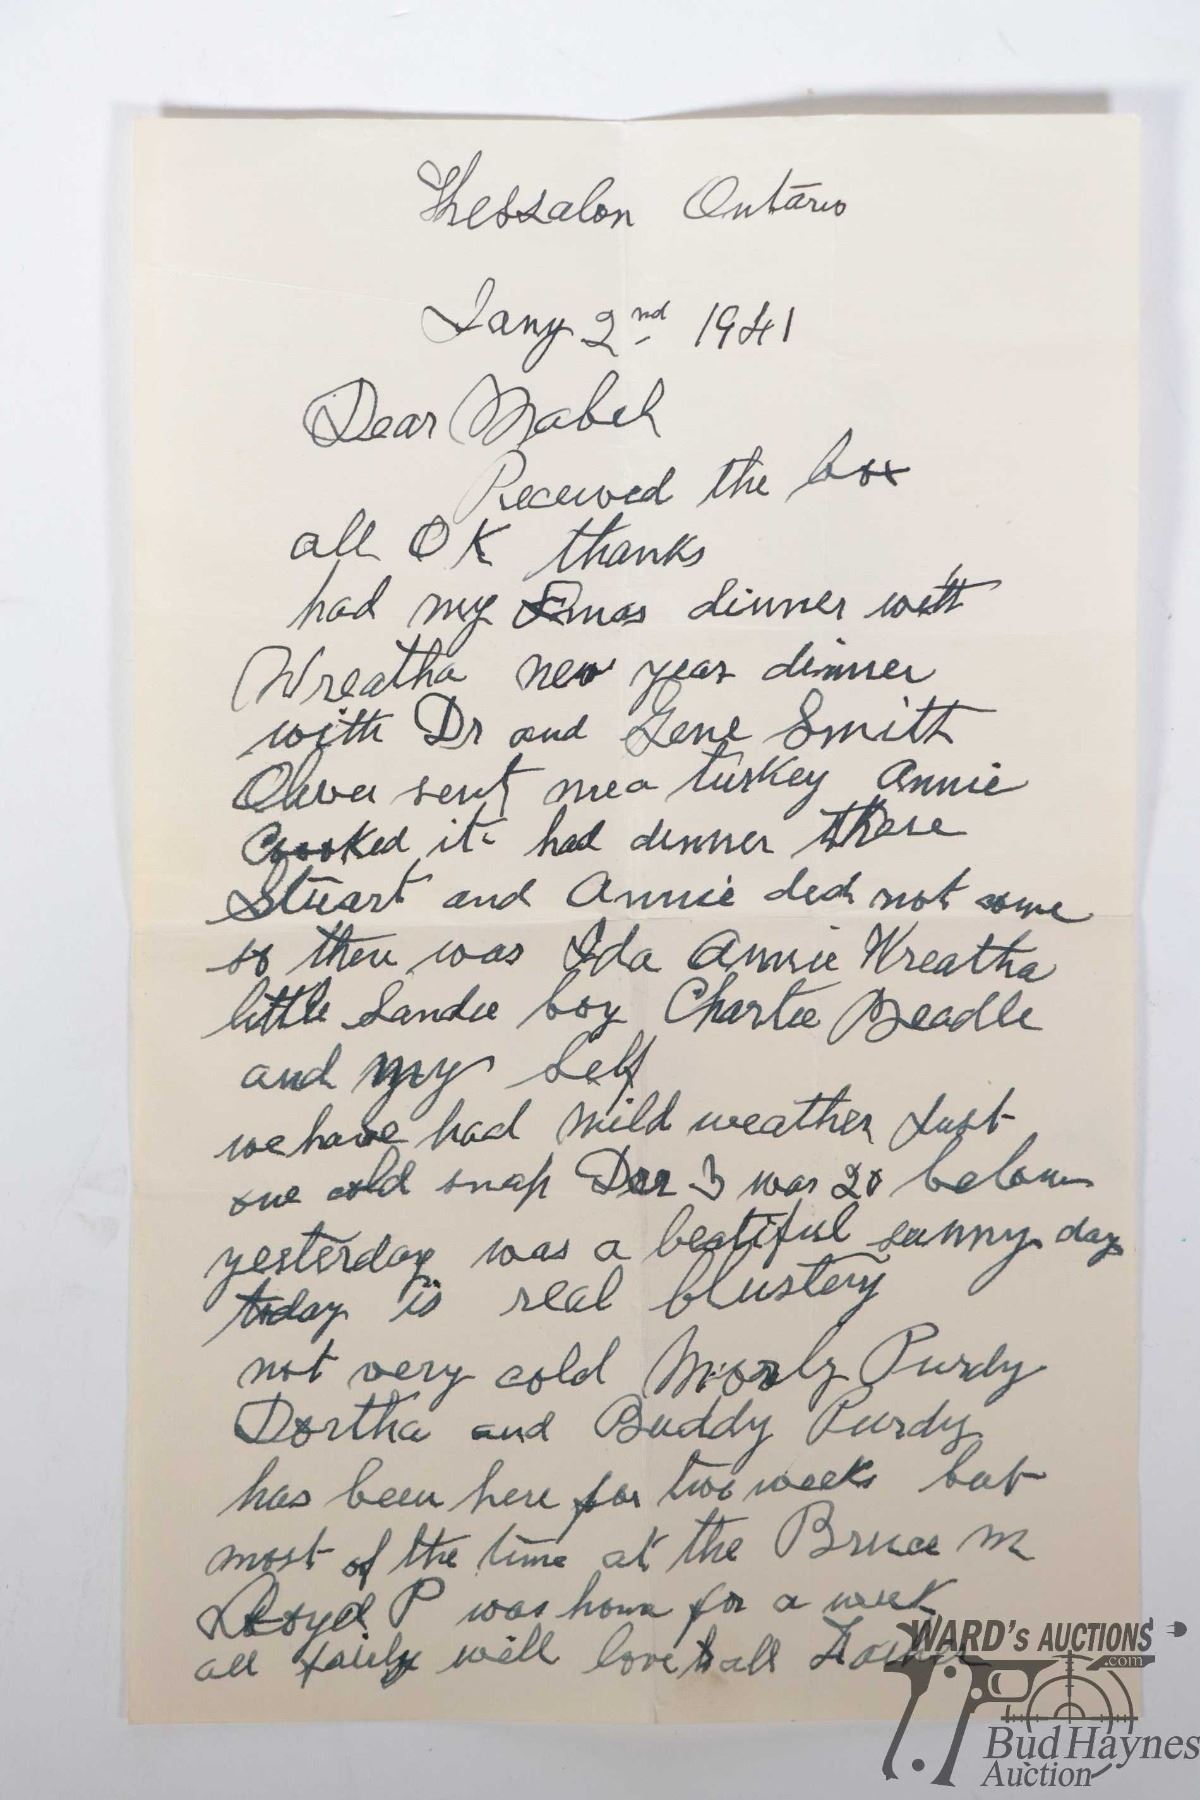 Thessalon Ontario
Jany 2nd 1941
Dear Mabel
Received the box
all OK thanks
had my Xmas dinner with
Wreatha new year dinner
with Dr and Gene Smith
Oliver sent me a turkey Annie
cooked it had dinner there
Stuart and Annie did not come
so there was Ida Annie Wreatha
little Sandie boy Charlie Beadle
and my self
we have had mild weather Just
one cold snap Dec 3 was 20 below
yesterday was a beatiful sunny day
today is real blustery
not very cold Morly Purdy
Dortha and Buddy Purdy
has been here for two weeks but
most of the time at the Bruce M
Lloyd P was home for a week
all fairly well love to all Father
WARD's AUCTIONS
.com
Bud Haynes
Auction